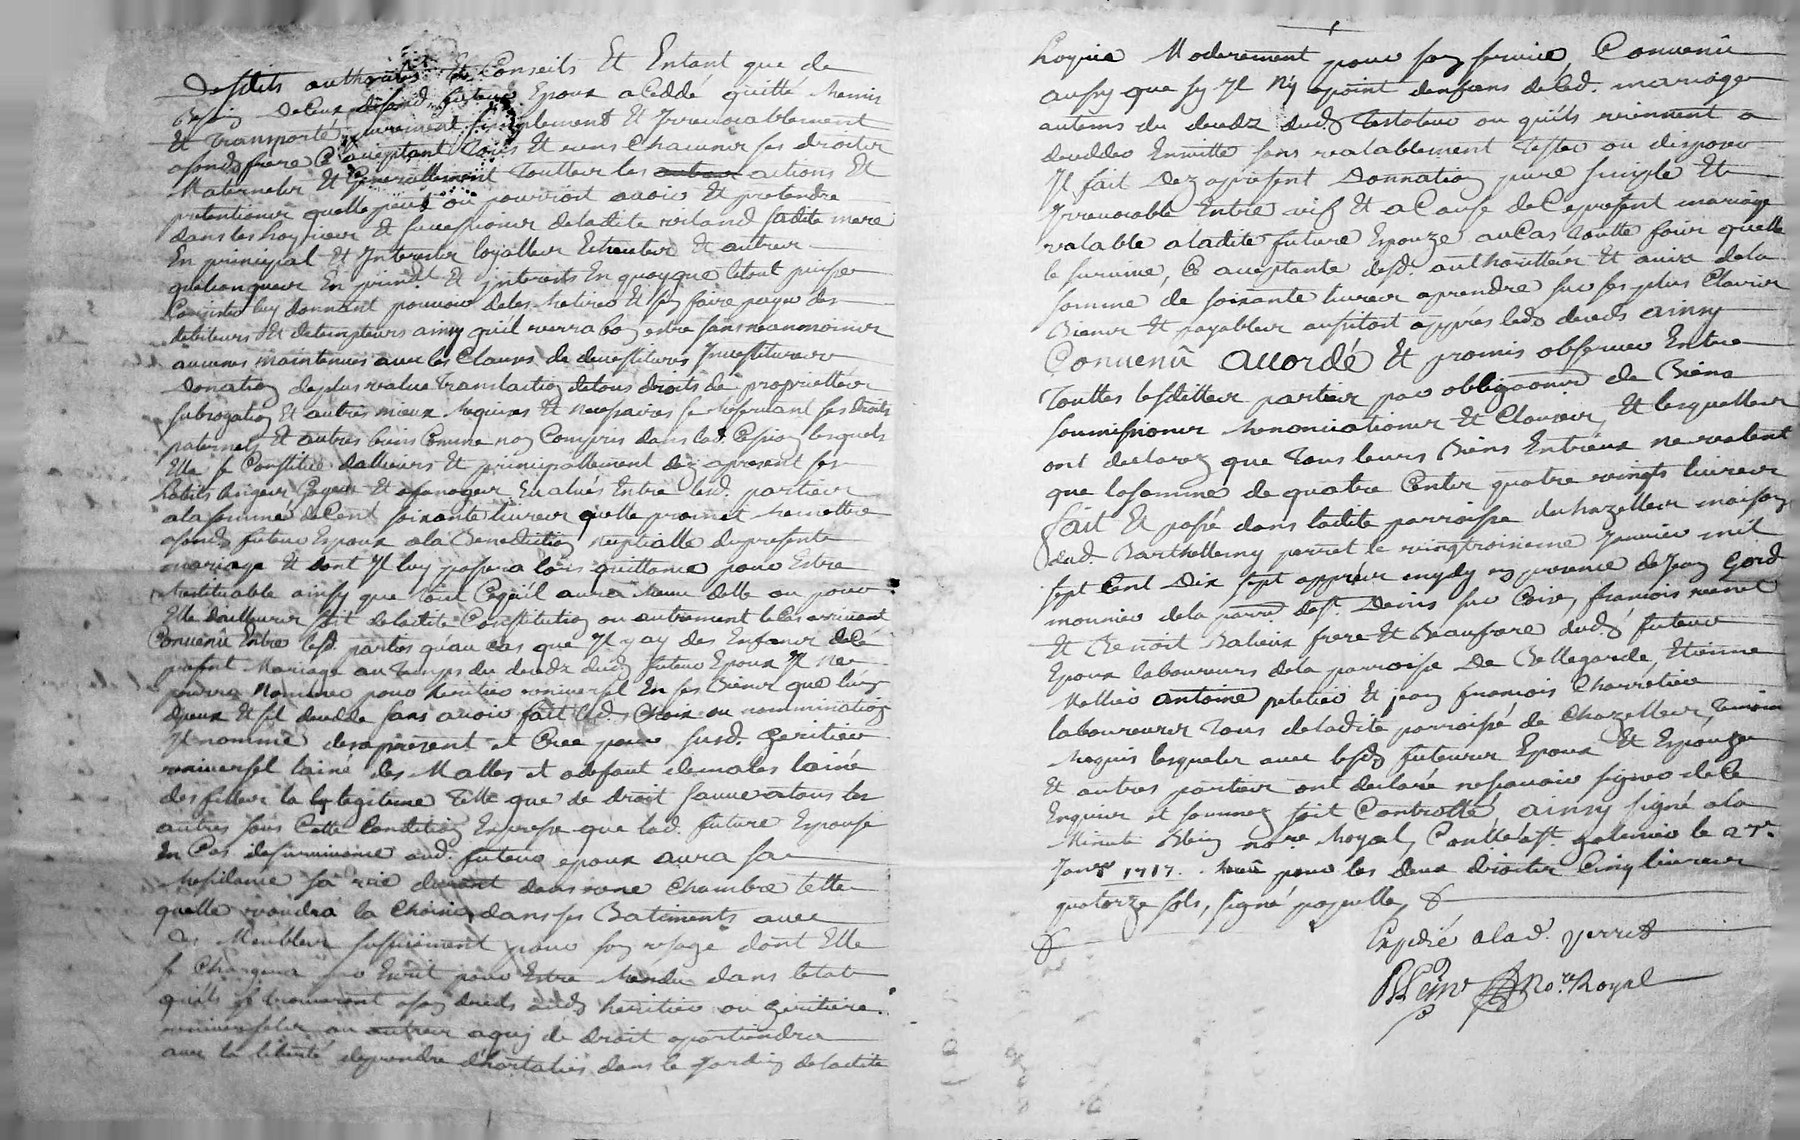 desdits authorités Et Conseils Et Entant que de
besoin deceux desond. futeur Epoux a Ceddé quitté Remis
Et Transporte purement simplement Et Irrevocablement
asondt frere Ce aceptant Tous Et uns Chacuns ses droits
Maternels Et Generallement Touttes les actions Et
pretentions quelle peut ou pourroit avoir Et pretendre
dans les hoyries Et successions deladite roiland sadite mere
En principal Et Interests loyalleux Et autres
quelconques En prinal Et interests En quoy que letout puisse
Consister luy donnant pouvoir deles Retirer Et sen faire payer des
debiteurs Et detempteurs ainsy quil verra bon estre sans neanmoins
aucunes maintenues avec les Clauses de devestitures Investitures
Donation deplus value Translation detous droits de proprietter
subrogation Et autres mieux Requises Et necessaires se Reservant ses droits
paternels Et autres biens Comme non Compris dans lad. Cession lesquels
Elle se Constitue dallieurs Et principallement dez apresent ses
habits Evalués Entre lesd. parties
ala somme deCent soixante livres quelle promet Remettre
asondt futeur Epoux ala Benediction nuptialle dupresent
mariage Et dont Il luy passera lors quittance pour Estre
restituable ainsy que tout Cequil aura Receu delle ou pour
Elle dailleurs soit deladite Constitution ou autrement leCas arrivant
Convenu Entre lesd. parties quau cas que Il y ay des Enfans deCe
present Mariage au temps du decedz dudt futeur Epoux Il ne
pourra Nommer pour heritier universel En ses Biens que luy
deux Et sil decedde sans avoir fait led. Choix ou nommination
Il nomme desapresent et Cree pour susd. heritier
universel lainé des Malles et adefaut demales lainé
des filles la legitime Telle que de droit sauve atous les
autres sous Cette Condition Expresse que lad. future Espouse
En Cas desurvivance aud. futeur epoux aura sa
Residance sa vie durant dans une Chambre telle
quelle voudra la Choisir dans ses Batiments avec
des Meubles suffisament pour son usage dont Elle
se Chargera par Ecrit pour Estre Rendu dans letat
quils se trouveront ason decedz audt heritier ou heritiere
universelle ou autres aquy de droit apartiendra
avec la liberté deprendre dhortalies dans le Jardin deladite
hoyrie Moderement pour son service, Convenu
aussy que sy Il N'y apoint denfans deled. mariage
autems du decedz dudt Testateur ou quils viennent a
decedder Ensuitte sans valablement Tester ou disposer
Il fait Dez apresent Donnation pure simple Et
Irrevocable Entre vifs Et aCause deCe present mariage
valable aladite future Epouze auCas Toutte foix quelle
le survive, Ce aceptante desd. authoritter Et avis dela
somme de soixante livres aprendre sur ses plus Clairs
Biens Et payables aussitost apprés led. decedz ainsy
Convenû accordé Et promis observer Entre
Touttes lesdittes parties par obligaons de Biens
soumissions Renonciations Et Clauses, Et lesquelles
ont declarez que Tous leurs Biens Entrieux ne valent
que lasomme de quatre Cents quatre vingts livres
fait Et passé dans ladite parroisse duhazelles maison
dud. Barthellemy perret le vingtroisieme Janvier mil
sept Cent Dix sept apprés mydy en presence de Jean Gord
monnier dela parr. dest. Denis sur Coize, francois venet
Et Benoit Balieux frere Et Beaufrere dudt futeur
Epoux laboureurs dela parroisse De Bellegarde, Etienne
Mellier antoine petetier Et jean francois Charretier
laboureurs Tous deladite parroisse de Chazelles, Temoins
Requis lesquels avec lesdt futeurs Epoux Et Espouze
Et autres parties ont declaré nescavoir signer deCe
Enquis et sommez soit Controllé, ainsy signé ala
Minute Blein nore Royal, Controllé a st. galmier le 27e.
Janer 1717. Receu pour les deux droits Cinq livres
quatorze sols, signé paquelle,
Expedié alad. perret
Blein No.re Royal